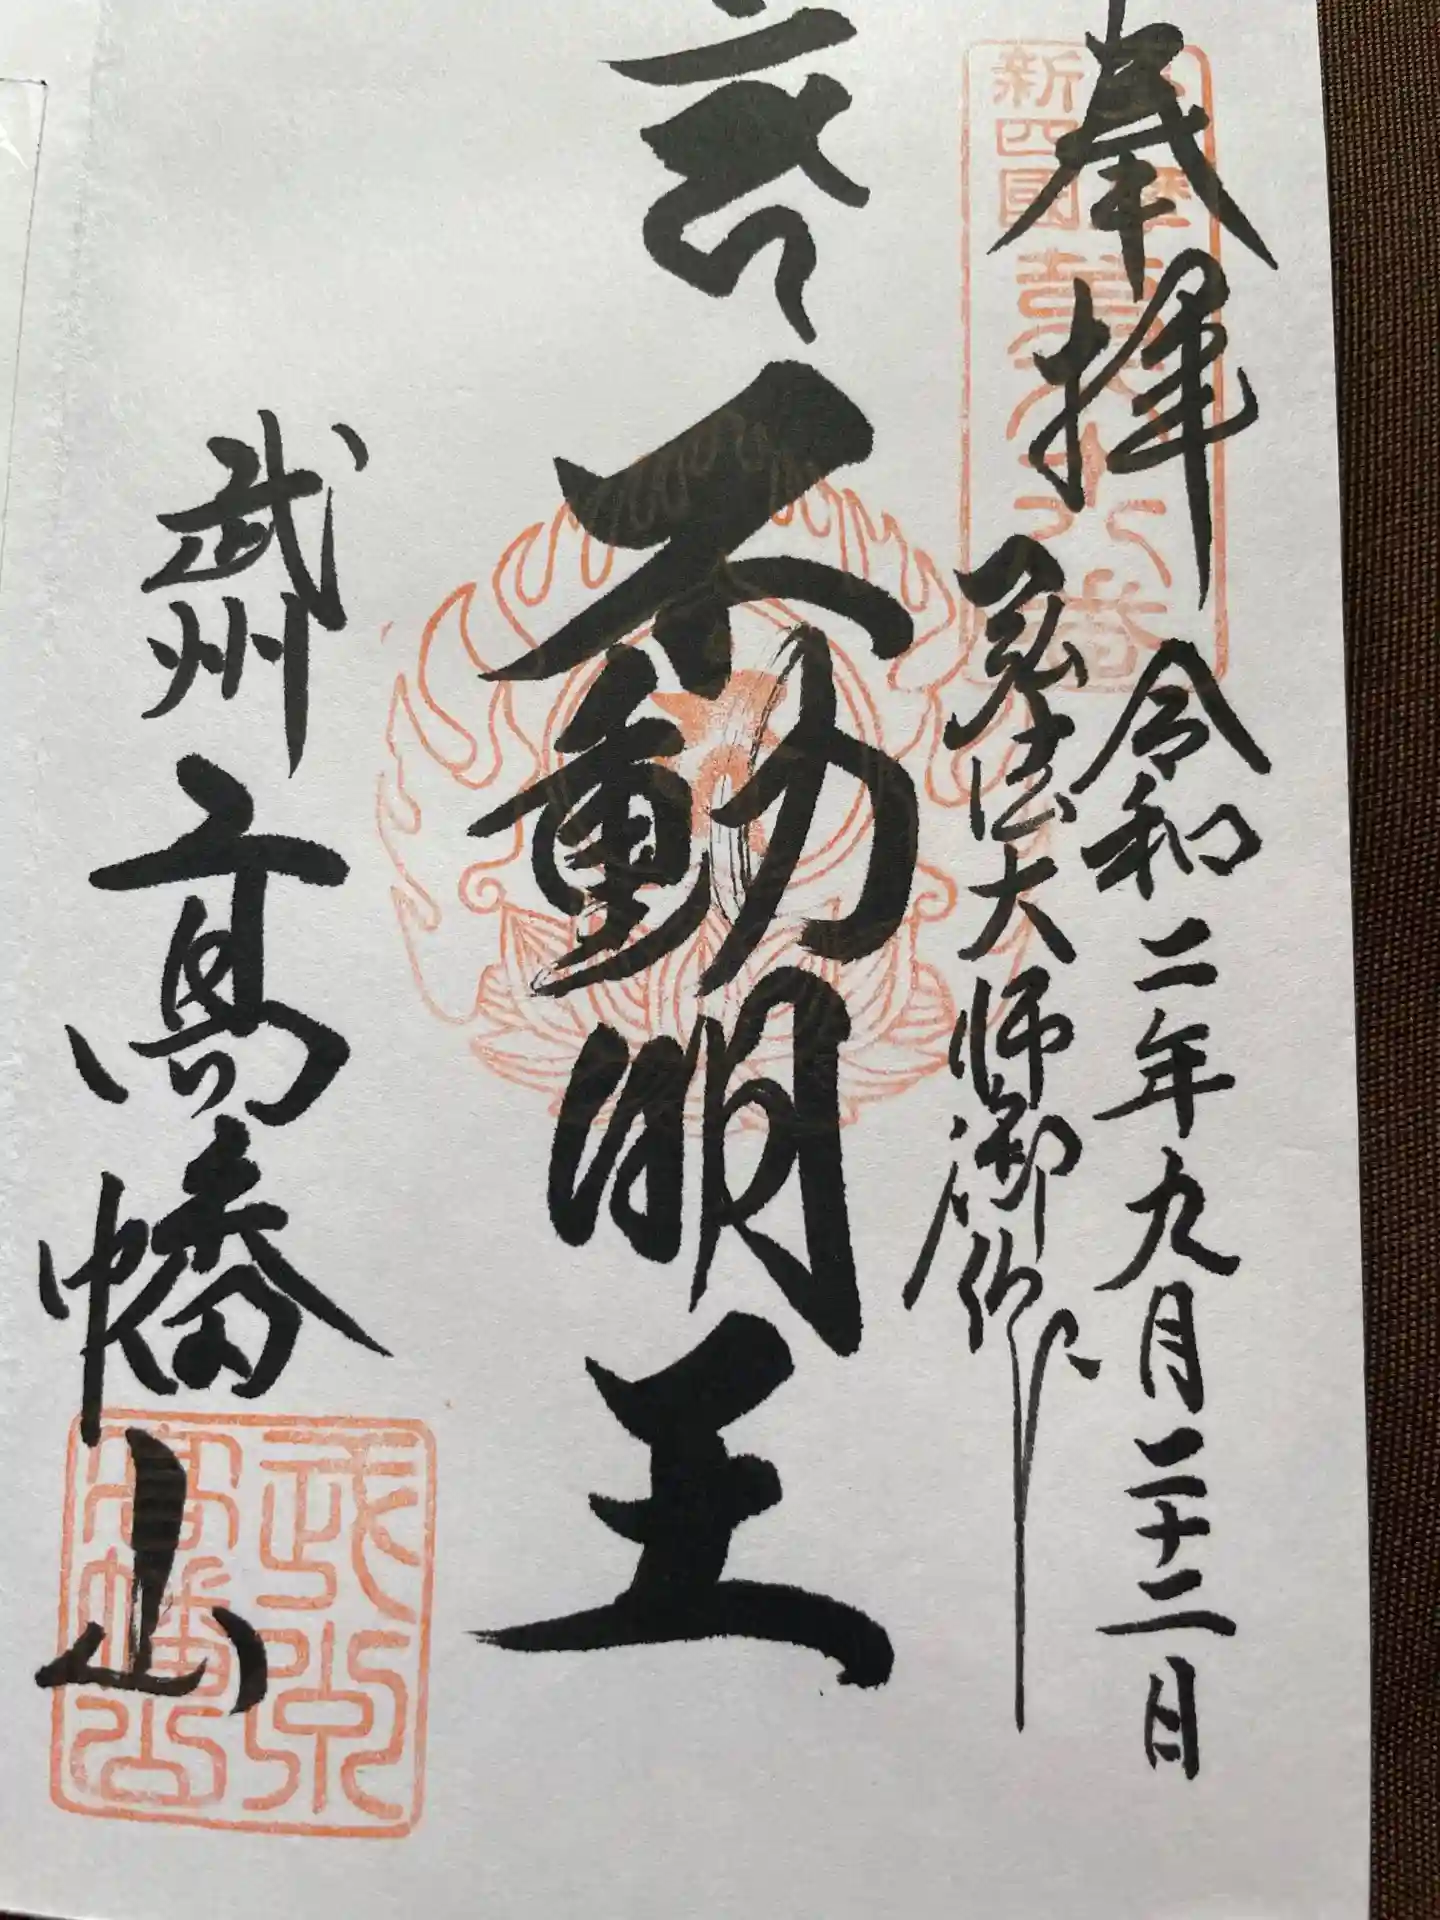 奉拝
令和二年九月二十二日
弘法大師御作
不動明王
武州
高幡山
新四國
番
武州
高幡山